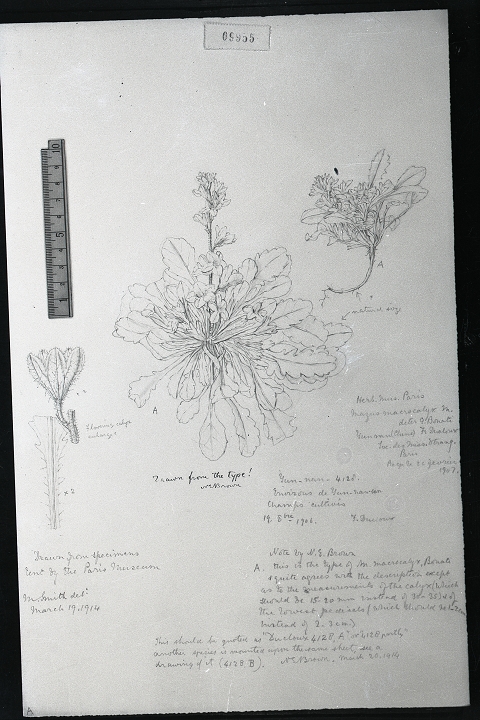 09955
A
natural size
Herb. Mus. Paris
Mazus macrocalyx
deter G. Bonati
Yunnan (China) F. Ducloux
Paris
1907.
× 2
A
Drawn from the type!
N.E. Brown
Yun-nan – 4128.
Environs de Yun-nansen
Champs cultivés
1906. F. Ducloux
Drawn from specimens
lent by the Paris Museum
M. Smith delt
March 19, 1914
Note by N.E. Brown
A. this is the type of M. macrocalyx, Bonati
& quite agrees with the description except
as to the measurements of the calyx (which
should be 15-20 mm instead of
the lowest pedicels (which should be
instead of 2-3 cm)
This should be quoted as "Ducloux 4128, A" or "4128 partly"
another species is mounted upon the same sheet, see a
drawing of it (4128 B). N.E. Brown, March 20, 1914.
A